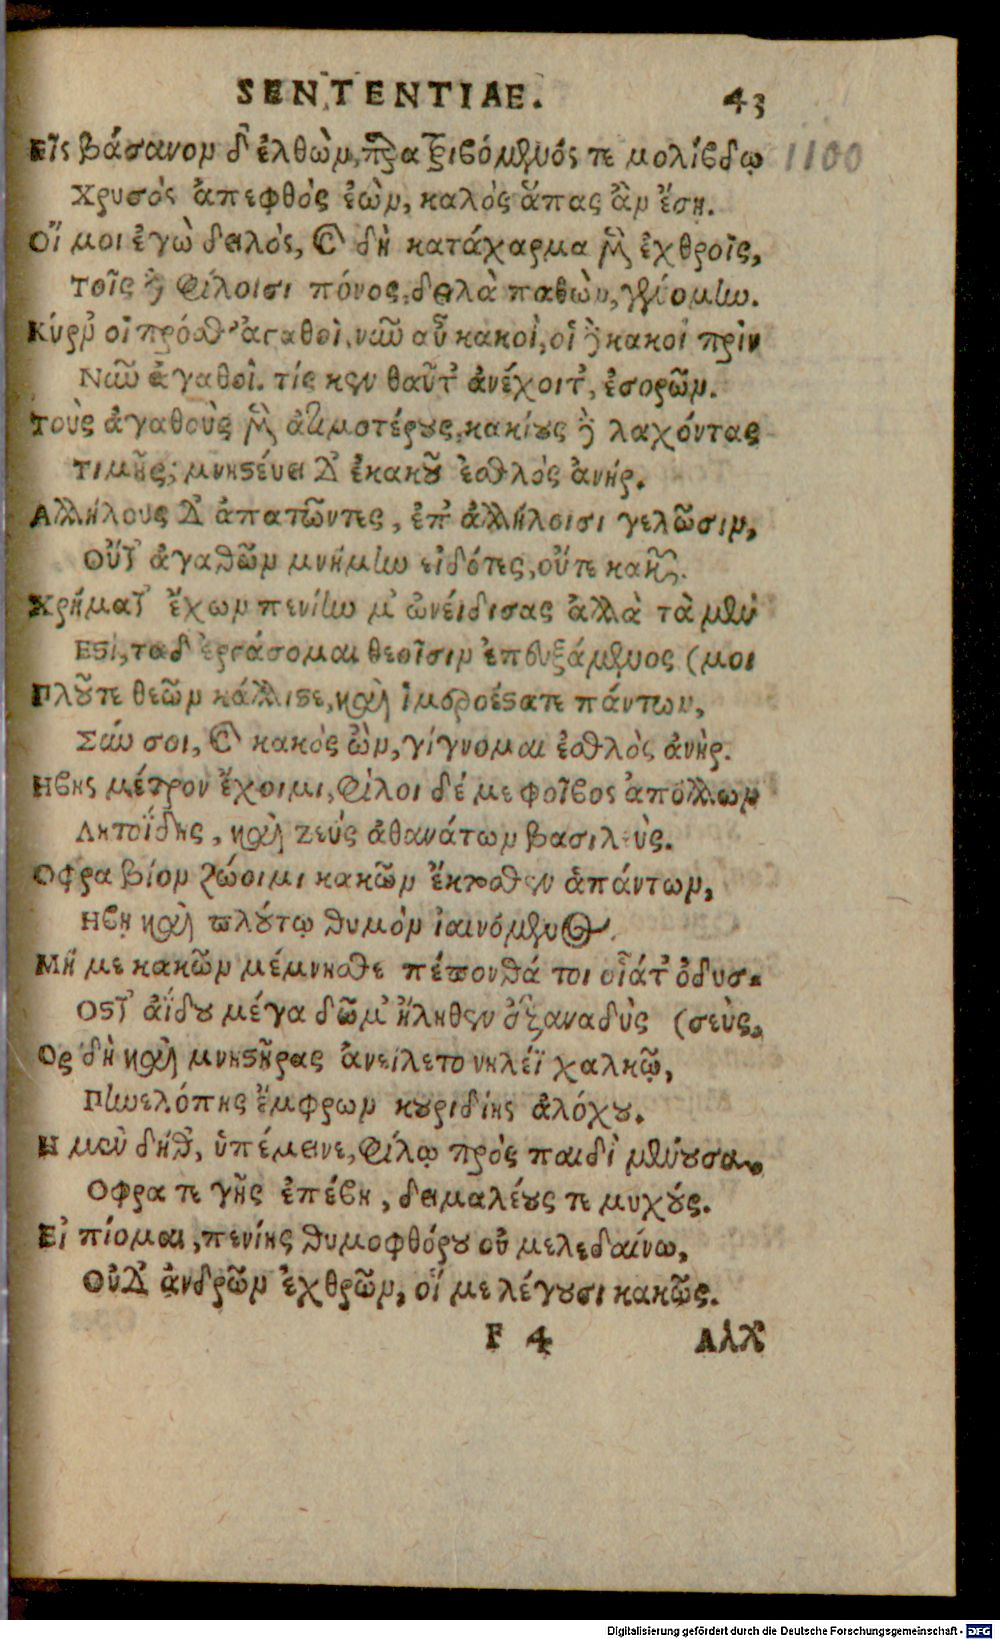 SENTENTIAE. 43
Εἰς βάσανον δ' ἐλθὼν, παρατριβόμενός τε μολίβδῳ 1100
Χρυσὸς ἄπεφθος ἐὼν, καλὸς ἅπας ἂν ἔσῃ.
Οἴ μοι ἐγὼ δειλὸς, καὶ δὴ κατάχαρμα μὲν ἐχθροῖς,
Τοῖς δὲ φίλοισι πόνος, δειλὰ παθὼν, γενόμην.
Κύρν' οἱ πρόσθ' ἀγαθοὶ, νῦν αὖ κακοὶ, οἱ δὲ κακοὶ πρὶν
Νῦν ἀγαθοὶ. τίς κεν ταῦτ' ἀνέχοιτ', ἐσορῶν.
Τοὺς ἀγαθοὺς μὲν ἀτιμοτέρους, κακίους δὲ λαχόντας
τιμῆς; μνηστεύει δ' ἐκ κακοῦ ἐσθλὸς ἀνήρ.
Αλλήλους δ' ἀπατῶντες, ἐπ' ἀλλήλοισι γελῶσιν,
Οὔτ' ἀγαθῶν μνήμην εἰδότες, οὔτε κακῶν.
Χρήματ' ἔχων πενίην μ' ὠνείδισας ἀλλὰ τὰ μέν
Εστι, τὰ δ' ἐργάσομαι θεοῖσιν ἐπευξάμενος (μοι
Πλοῦτε θεῶν κάλλιστε, καὶ ἱμεροέστατε πάντων,
Σύν σοι, καὶ κακὸς ὢν, γίγνομαι ἐσθλὸς ἀνὴρ.
Ηβης μέτρον ἔχοιμι, φίλοι δέ με φοῖβος ἀπόλλων
Λητοΐδης, καὶ ζεὺς ἀθανάτων βασιλεὺς.
Οφρα βίον ζώοιμι κακῶν ἔκτοσθεν ἁπάντων,
Ηβῃ καὶ πλούτῳ θυμὸν ἰαινόμενος.
Μή με κακῶν μέμνησθε πέπονθά τοι οἷάτ' ὀδυσ-
Οστ' ἀΐδου μέγα δῶμ' ἤλυθεν ἐξαναδὺς (σεὺς,
Ος δὴ καὶ μνηστῆρας ἀνείλετο νηλέϊ χαλκῷ,
Πηνελόπης ἔμφρων κουριδίης ἀλόχου.
Η μιν δήθ', ὑπέμεινε, φίλῳ πρὸς παιδὶ μένουσα,
Οφρα τε γῆς ἐπέβη, δειμαλέους τε μυχούς.
Εἰ πίομαι, πενίης θυμοφθόρου οὐ μελεδαίνω,
Οὐδ' ἀνδρῶν ἐχθρῶν, οἵ με λέγουσι κακῶς.
F 4 Αλλ'
Digitalisierung gefördert durch die Deutsche Forschungsgemeinschaft - DFG